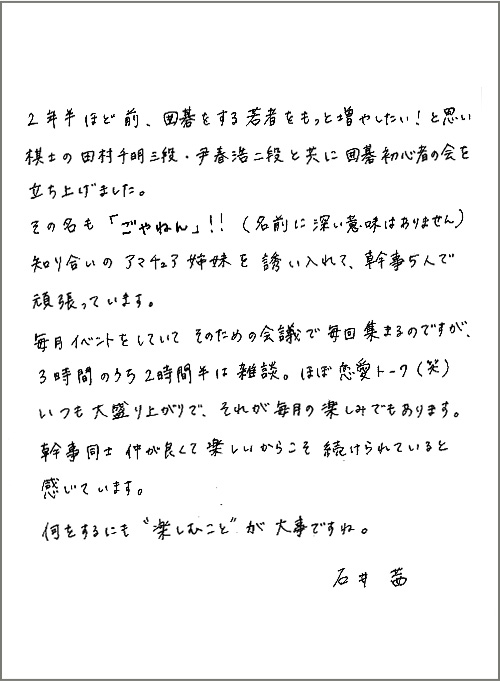 2年半ほど前、囲碁をする若者をもっと増やしたい!と思い
棋士の田村千明三段・尹春浩二段と共に囲碁初心者の会を
立ち上げました。
その名も「ごやねん」!!(名前に深い意味はありません)
知り合いのアマチュア姉妹を誘い入れて、幹事5人で
頑張っています。
毎月イベントをしていてそのための会議で毎回集まるのですが、
3時間のうち2時間半は雑談。ほぼ恋愛トーク(笑)
いつも大盛り上がりで、それが毎月の楽しみでもあります。
幹事同士仲が良くて楽しいからこそ続けられていると
感じています。
何をするにも“楽しむこと”が大事ですね。
石井茜